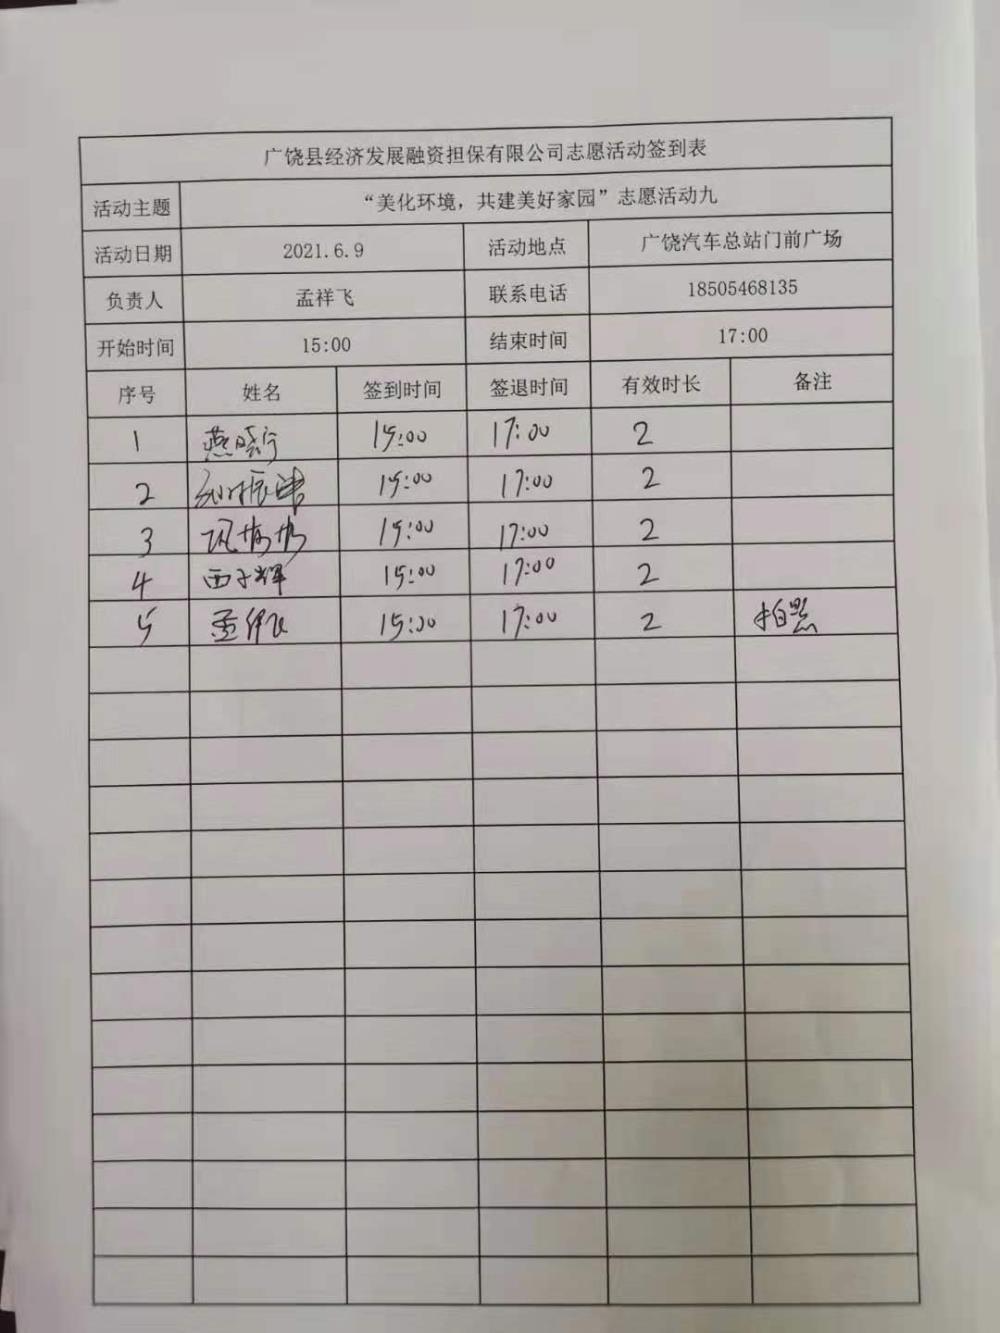 广饶县经济发展融资担保有限公司志愿活动签到表
活动主题 “美化环境，共建美好家园”志愿活动九
活动日期 2021.6.9 活动地点 广饶汽车总站门前广场
负责人 孟祥飞 联系电话 18505468135
开始时间 15:00 结束时间 17:00
序号 姓名 签到时间 签退时间 有效时长 备注
1 燕晓宁 15:00 17:00 2
2 15:00 17:00 2
3 15:00 17:00 2
4 西子辉 15:00 17:00 2
5 15:00 17:00 2 拍照